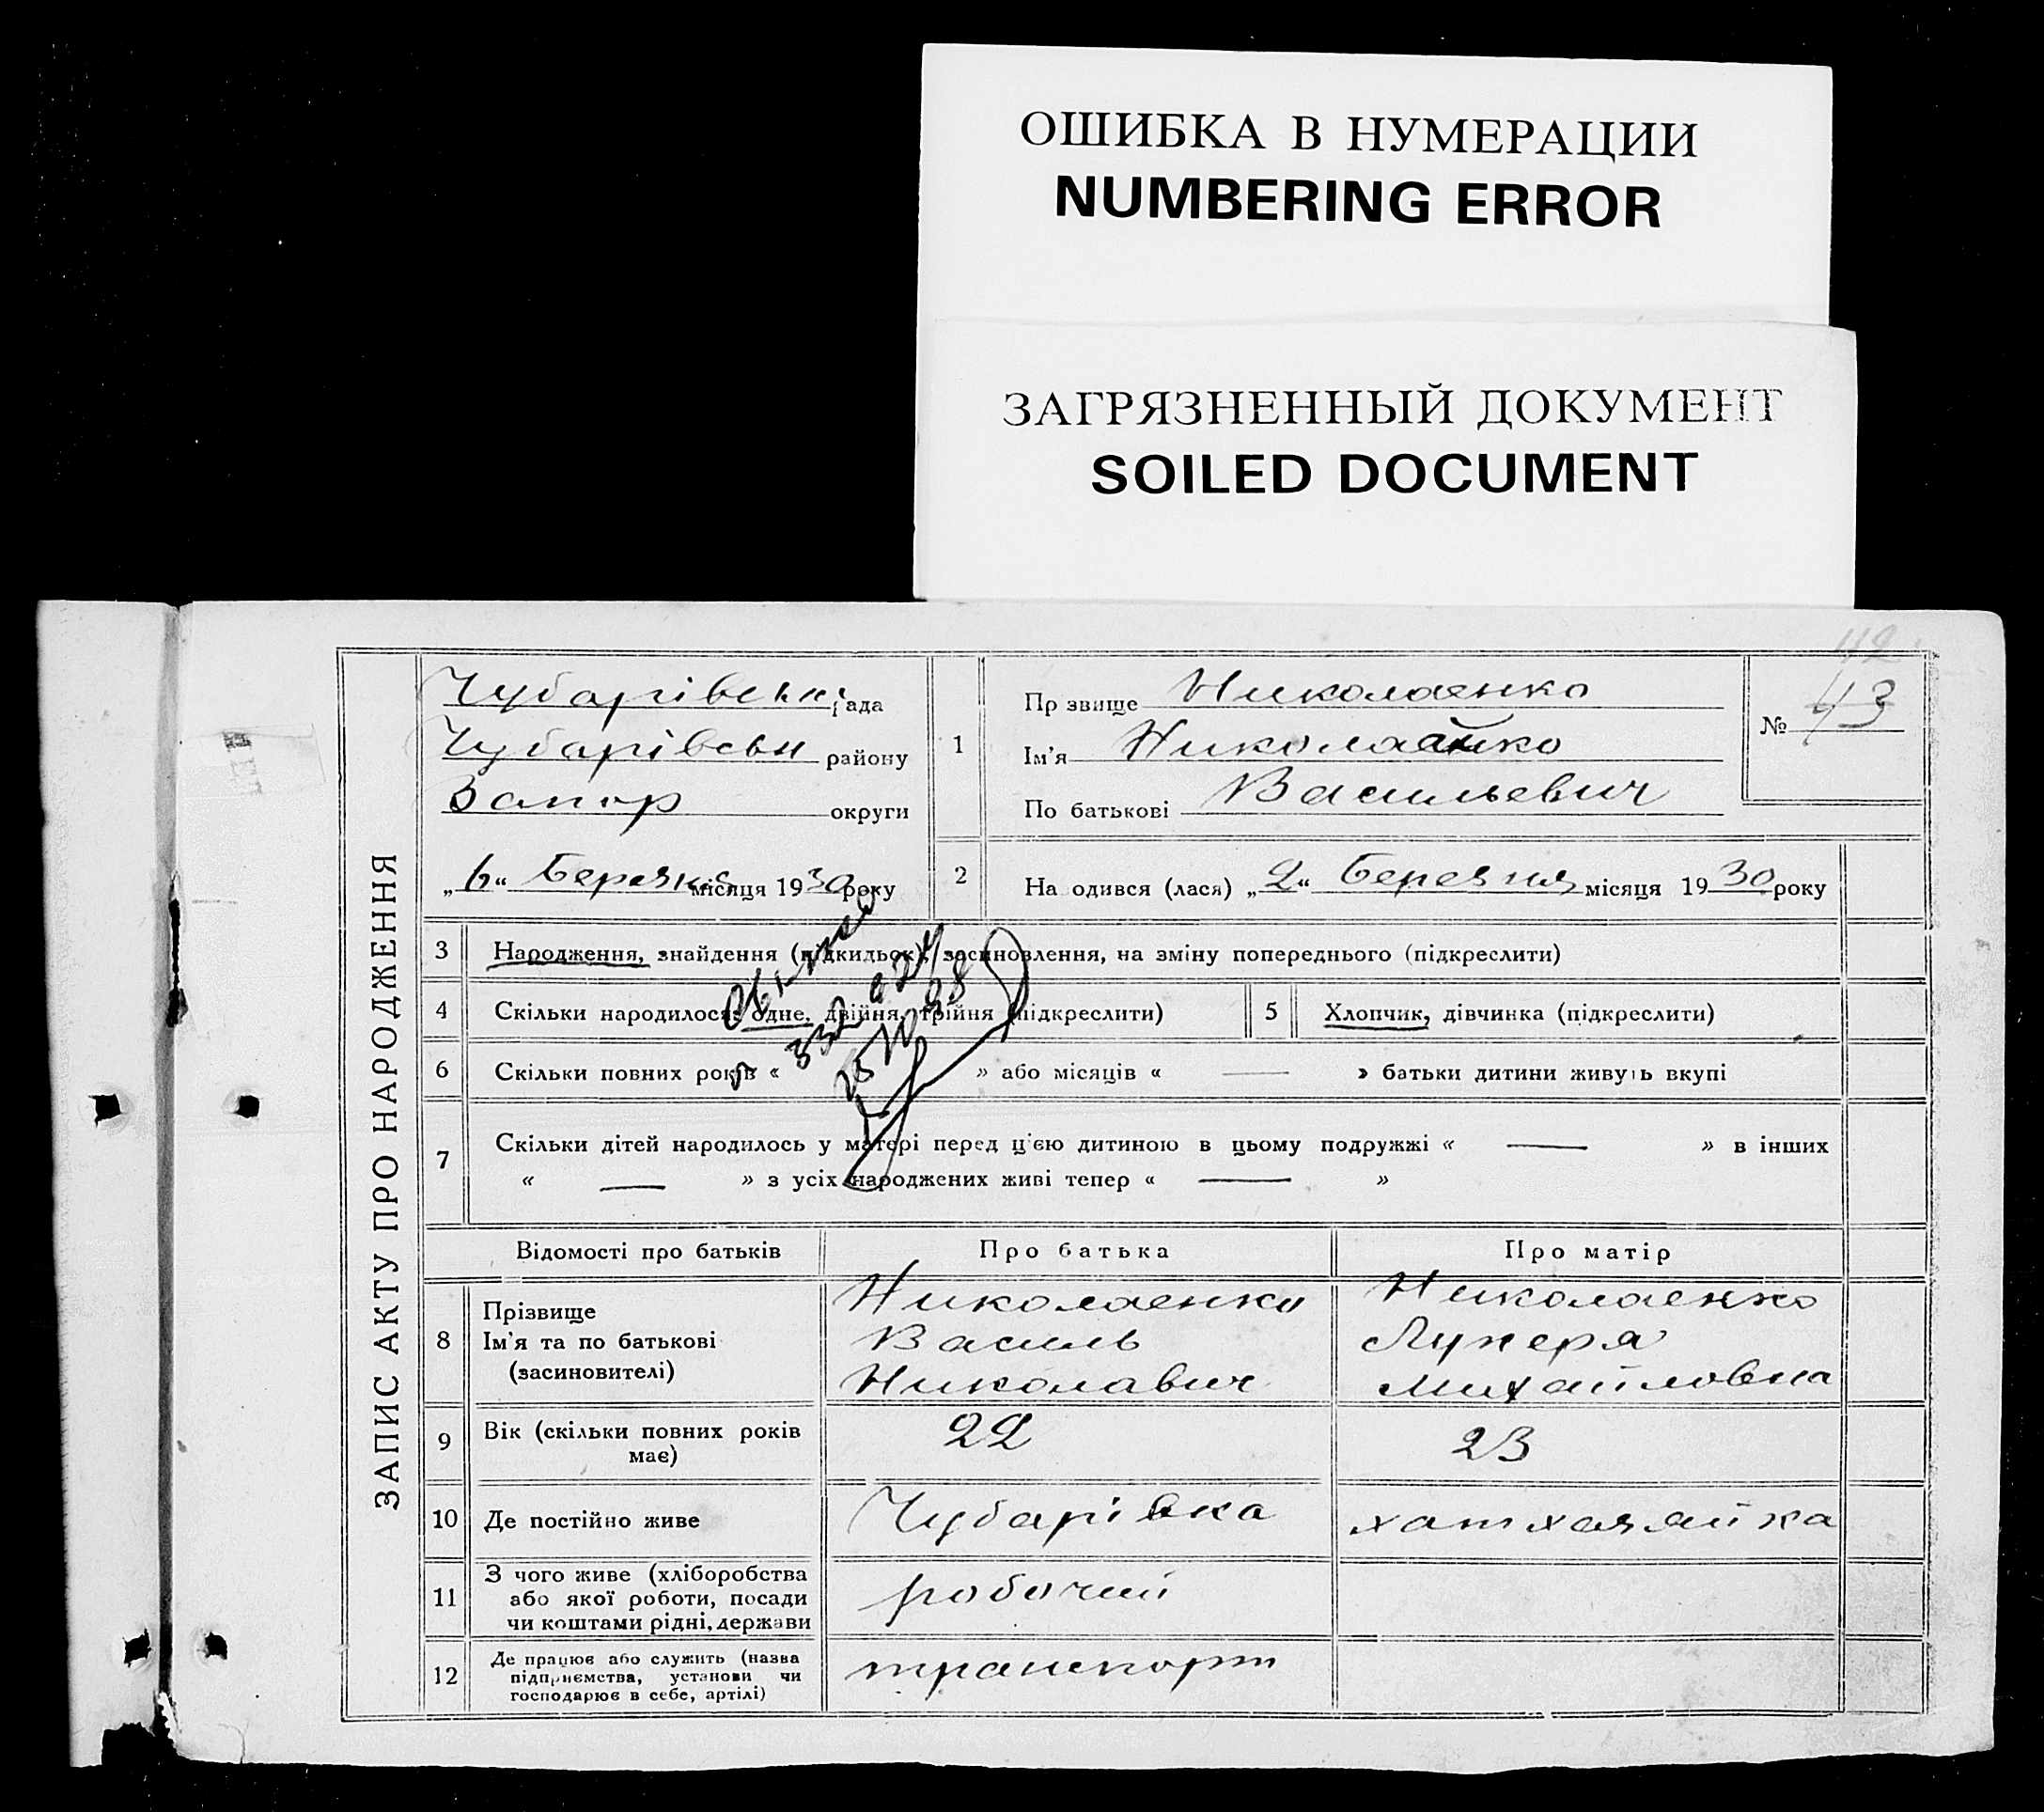 ОШИБКА В НУМЕРАЦИИ
NUMBERING ERROR
ЗАГРЯЗНЕННЫЙ ДОКУМЕНТ
SOILED DOCUMENT
42
ЗАПИС АКТУ ПРО НАРОДЖЕННЯ
Чубарівськ рада
Чубарівськ району
Запор округи
„6“ Березня місяця 1930 року
1
Пр звище Николаенко
Ім'я
По батькові Васильевич
№ 43
2
На одився (лася) „2“ Березня місяця 1930 року
3 Народження, знайдення (підкидьок), засиновлення, на зміну попереднього (підкреслити)
4 Скільки народилося: одне, двійня, трійня (підкреслити)
5 Хлопчик, дівчинка (підкреслити)
6 Скільки повних років « » або місяців « — » батьки дитини живуть вкупі
7 Скільки дітей народилось у матері перед цією дитиною в цьому подружжі « — » в інших
« — » з усіх народжених живі тепер « — »
Відомості про батьків Про батька Про матір
8 Прізвище
Ім'я та по батькові
(засиновителі)
Николаенко
Василь
Николавич
Николаенко
Лукеря
Михайловна
9 Вік (скільки повних років
має)
22
23
10 Де постійно живе Чубарівка хатхазяйка
11 З чого живе (хліборобства
або якої роботи, посади
чи коштами рідні, держави
робочий
12 Де працює або служить (назва
підприємства, установи чи
господарює в себе, артілі)
транспорт